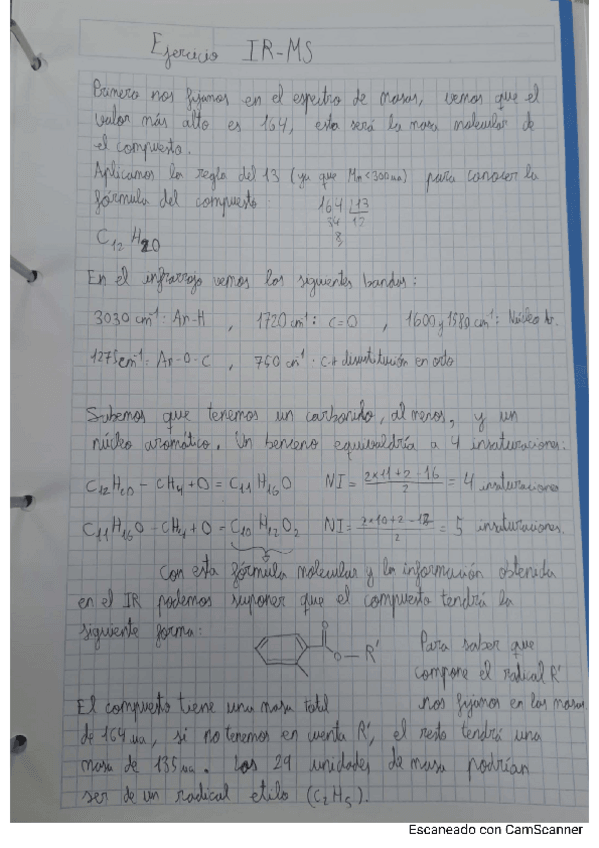 Ejercicio IR-MS
Primero nos fijamos en el espectro de masas, vemos que el
valor más alto es 164, esta será la masa molecular de
el compuesto.
Aplicamos la regla del 13 (ya que Mm<300ua) para conocer la
fórmula del compuesto:
164 |13
34 12
8
C12 H20
En el infrarrojo vemos las siguientes bandas:
3030 cm-1: Ar-H , 1720 cm-1: C=O , 1600 y 1580 cm-1: Núcleo Ar.
1275cm-1: Ar-O-C , 750 cm-1: C-H disustitución en orto
Sabemos que tenemos un carbonilo, al menos, y un
núcleo aromático. Un benceno equivaldría a 4 insaturaciones:
C12H20 - CH4 + O = C11H16O NI = 2×11+2-16 / 2 = 4 insaturaciones
C11H16O - CH4 + O = C10H12O2 NI = 2×10+2-12 / 2 = 5 insaturaciones.
Con esta fórmula molecular y la información obtenida
en el IR podemos suponer que el compuesto tendrá la
siguiente forma:
O
O - R'
Para saber que
compone el radical R'
nos fijamos en las masas
El compuesto tiene una masa total
de 164 ua, si no tenemos en cuenta R', el resto tendrá una
masa de 135 ua. Las 29 unidades de masa podrían
ser de un radical etilo (C2H5).
Escaneado con CamScanner